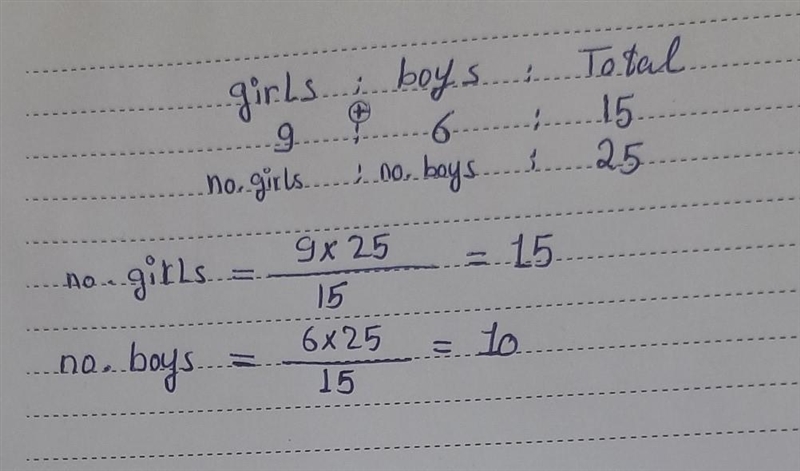 girls : boys : Total
9 ⊕ : 6 : 15
no. girls : no. boys : 25
no. girls = 9 x 25 / 15 = 15
no. boys = 6 x 25 / 15 = 10